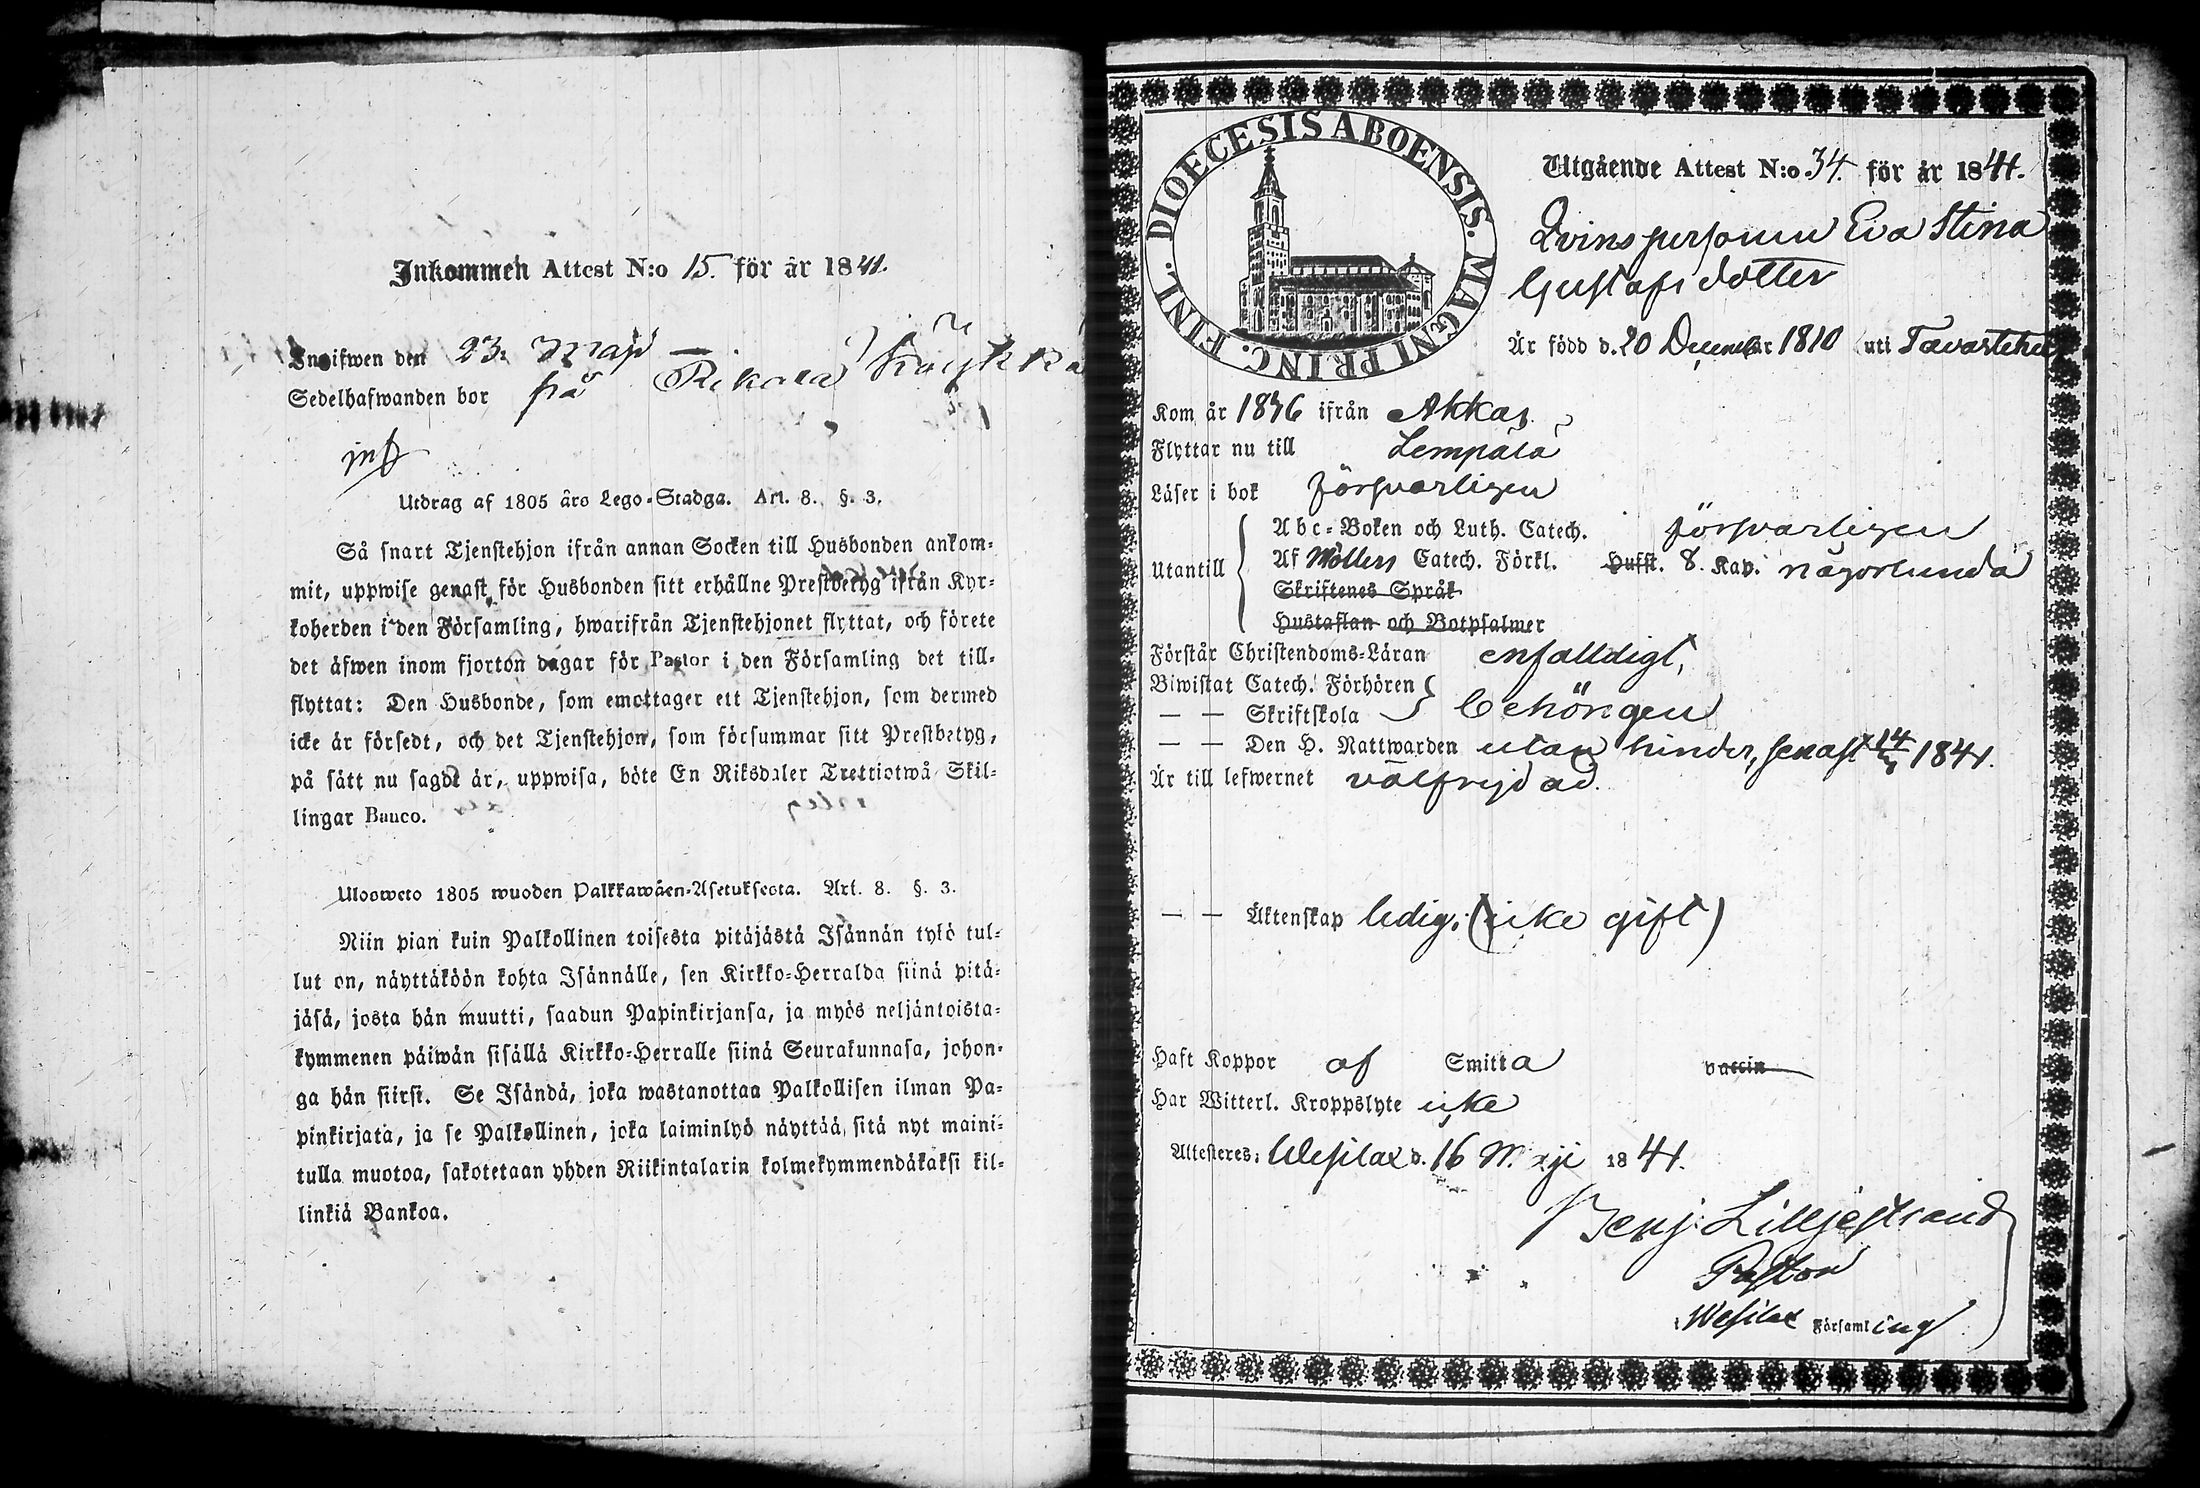 Inkommen Attest N:o 15. för år 1841.
Ingifwen den 23. Maji
Sedelhafwanden bor på
Utdrag af 1805 års Lego-Stadga. Art. 8. §. 3.
Så snart Tjenstehjon ifrån annan Socken till Husbonden ankom-
mit, uppwise genast för Husbonden sitt erhållne Prestbetyg ifrån Kyr-
koherden i den Församling, hwarifrån Tjenstehjonet flyttat, och förete
det äfwen inom fjorton dagar för Pastor i den Församling det till-
flyttat: Den Husbonde, som emottager ett Tjenstehjon, som dermed
icke är försedt, och det Tjenstehjon, som försummar sitt Prestbetyg,
på sätt nu sagdt är, uppwisa, böte En Riksdaler Trettiotwå Skil-
lingar Banco.
Ulosweto 1805 wuoden Palkkawäen-Asetuksesta. Art. 8. §. 3.
Niin pian kuin Palkollinen toisesta pitäjästä Isännän tykö tul-
lut on, näyttäköön kohta Isännälle, sen Kirkko-Herralda siinä pitä-
jäsä, josta hän muutti, saadun Papinkirjansa, ja myös neljäntoista-
kymmenen päiwän sisällä Kirkko-Herralle siinä Seurakunnasa, johon-
ga hän siirsi. Se Isändä, joka wastanottaa Palkollisen ilman Pa-
pinkirjata, ja se Palkollinen, joka laiminlyö näyttää sitä nyt maini-
tulla muotoa, sakotetaan yhden Riikintalarin kolmekymmendäkaksi kil-
linkiä Bankoa.
DIOECESIS ABOENSIS. MAGNI PRINC. FINL.
Utgående Attest N:o 34. för år 1841.
Qvinspersonen Eva Stina
Gustafsdotter
Är född d. 20 December 1810 uti Tavastehus
Kom år 1836 ifrån Akkas
Flyttar nu till Lempälä
Läser i bok försvarligen
Utantill
Abc-Boken och Luth. Catech. försvarligen
Af Möllers Catech. Förkl. Hufst. 8. Kap. någorlunda
Skriftenes Språk
Hustaflan och Botpsalmer
Förstår Christendoms-Läran enfalldigt,
Biwistat Catech. Förhören
— — Skriftskola behörigen
— — Den H. Nattwarden utan hinder, senast 1841.
Är till lefwernet välfrejdad.
— — Äktenskap ledig. (icke gift)
Haft Koppor af Smitta vaccin
Har Witterl. Kroppslyte icke
Attesteres; Wesilax d. 16 Maji 1841.
Benj: Lilljestrand
Pastor
i Wesilax Församling